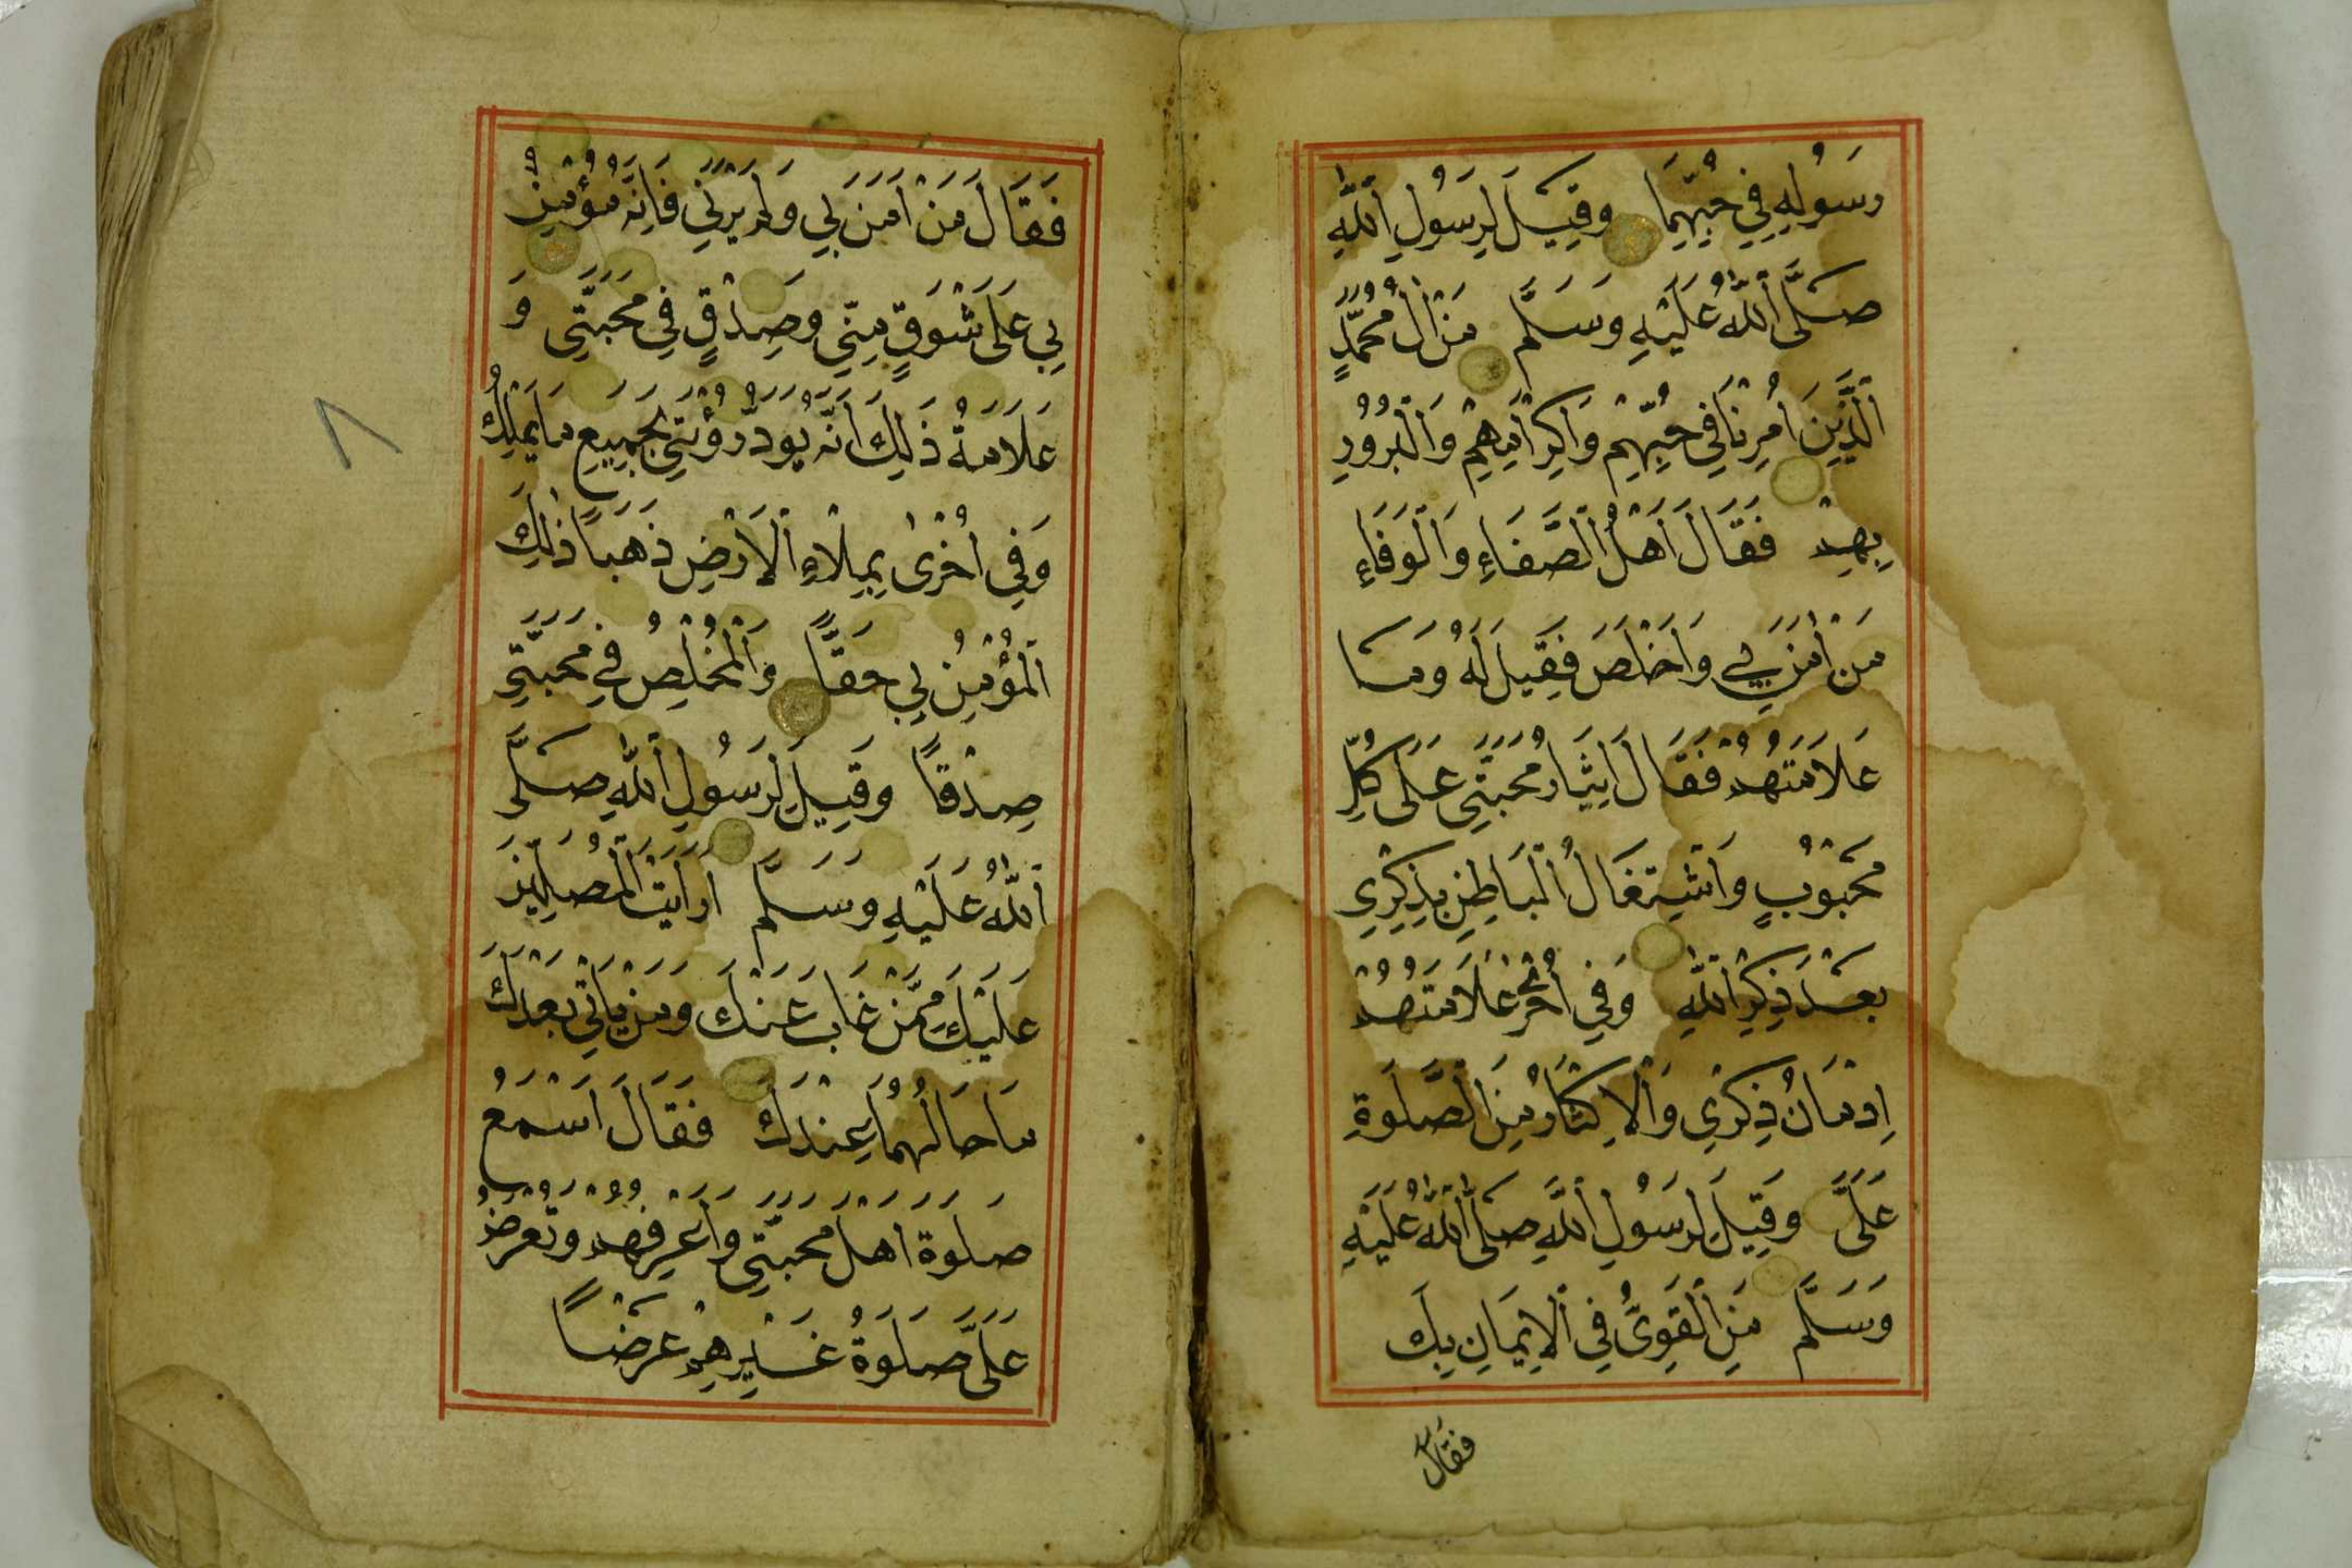 رَسُولِهِ فِي حُبِّهِمَا وَقِيلَ لِرَسُولِ اللّٰهِ
صَلَّى اللّٰهُ عَلَيْهِ وَسَلَّم مَنْ اٰلُ مُحَمَّدٍ
الَّذِينَ اُمِرْنَا فِي حُبِّهِمْ وَاِكْرَامِهِمْ وَالْبُرُورِ
بِهِمْ فَقَالَ اَهْلُ الصَّفَاءِ وَالْوَفَاءِ
مَنْ اٰمَنَ بِي وَاَخْلَصَ فَقِيلَ لَهُ وَمَا
عَلَامَتُهُمْ فَقَالَ اِيثَارُ مُحَبَّتِي عَلَى كُلِّ
مَحْبُوبٍ وَاشْتِغَالُ الْبَاطِنِ بِذِكْرِي
بَعْدَ ذِكْرِ اللّٰهِ وَفِي اُخْرٰى عَلَامَتُهُمْ
اِدْمَانُ ذِكْرِي وَالْاِكْثَارُ مِنَ الصَّلٰوةِ
عَلَيَّ وَقِيلَ لِرَسُولِ اللّٰهِ صَلَّى اللّٰهُ عَلَيْهِ
وَسَلَّم مَنِ الْقَوِيُّ فِي الْاِيمَانِ بِكَ
فقال
فَقَالَ مَنْ اٰمَنَ بِي وَلَمْ يَرَنِي فَاِنَّهُ مُؤْمِنٌ
بِي عَلَى شَوْقٍ مِنِّي وَصِدْقٍ فِي مَحَبَّتِي وَ
عَلَامَةُ ذٰلِكَ اَنَّهُ يَوَدُّ رُؤْيَتِي بِجَمِيعِ مَا يَمْلِكُ
وَفِي اُخْرٰى بِمِلْاءِ الْاَرْضِ ذَهَبًا ذٰلِكَ
الْمُؤْمِنُ بِي حَقًّا وَالْمُخْلِصُ فِي مَحَبَّتِي
صِدْقًا وَقِيلَ لِرَسُولِ اللّٰهِ صَلَّى
اللّٰهُ عَلَيْهِ وَسَلَّم اَرَاَيْتَ الْمُصَلِّينَ
عَلَيْكَ مِمَّنْ غَابَ عَنْكَ وَمَنْ يَاْتِي بَعْدَكَ
مَا حَالُهُمَا عِنْدَكَ فَقَالَ اَسْمَعُ
صَلٰوةَ اَهْلِ مَحَبَّتِي وَاَعْرِفُهُمْ وَتُعْرَضُ
عَلَيَّ صَلٰوةُ غَيْرِهِمْ عَرْضًا
٨